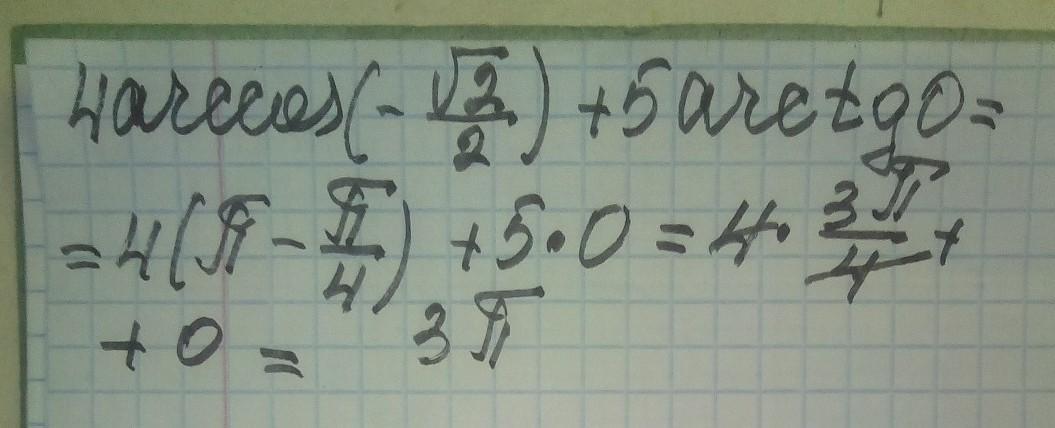 4arccos(-√2/2)+5arctg0=
=4(π-π/4)+5·0=4·3π/4+
+0= 3π